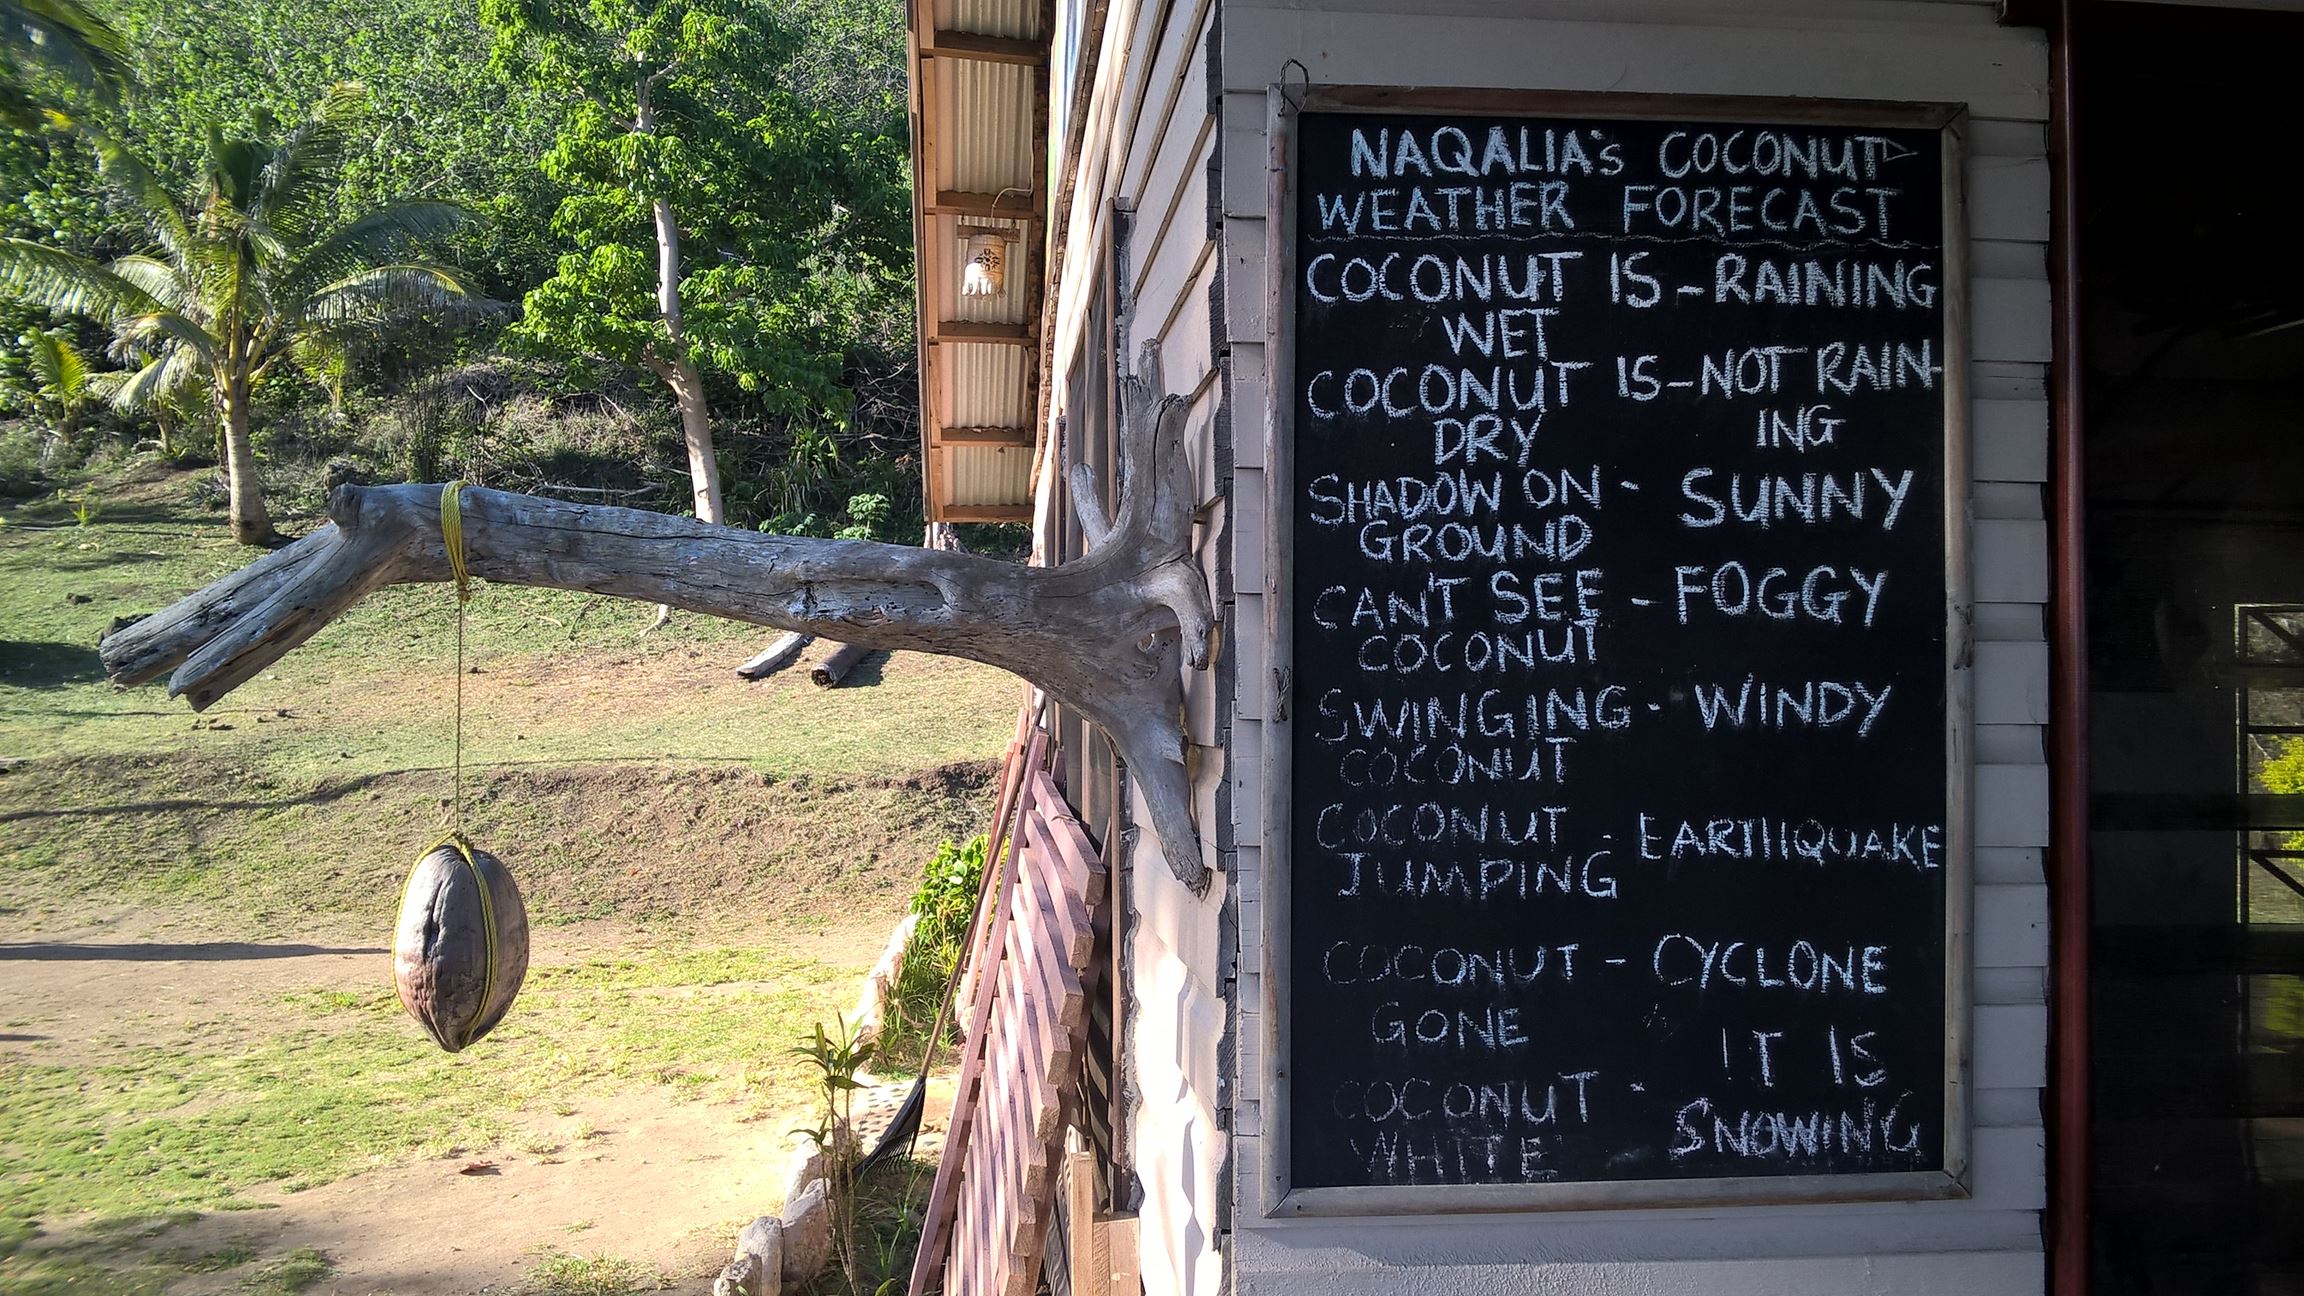 NAQALIA's COCONUT
WEATHER FORECAST
COCONUT IS - RAINING
WET
COCONUT IS - NOT RAIN-
DRY ING
SHADOW ON - SUNNY
GROUND
CAN'T SEE - FOGGY
COCONUT
SWINGING - WINDY
COCONUT
COCONUT - EARTHQUAKE
JUMPING
COCONUT - CYCLONE
GONE
IT IS
COCONUT - SNOWING
WHITE